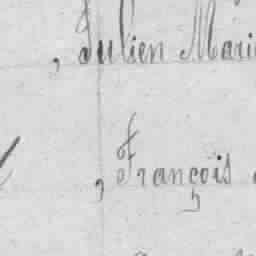 , Julien Marie
, François